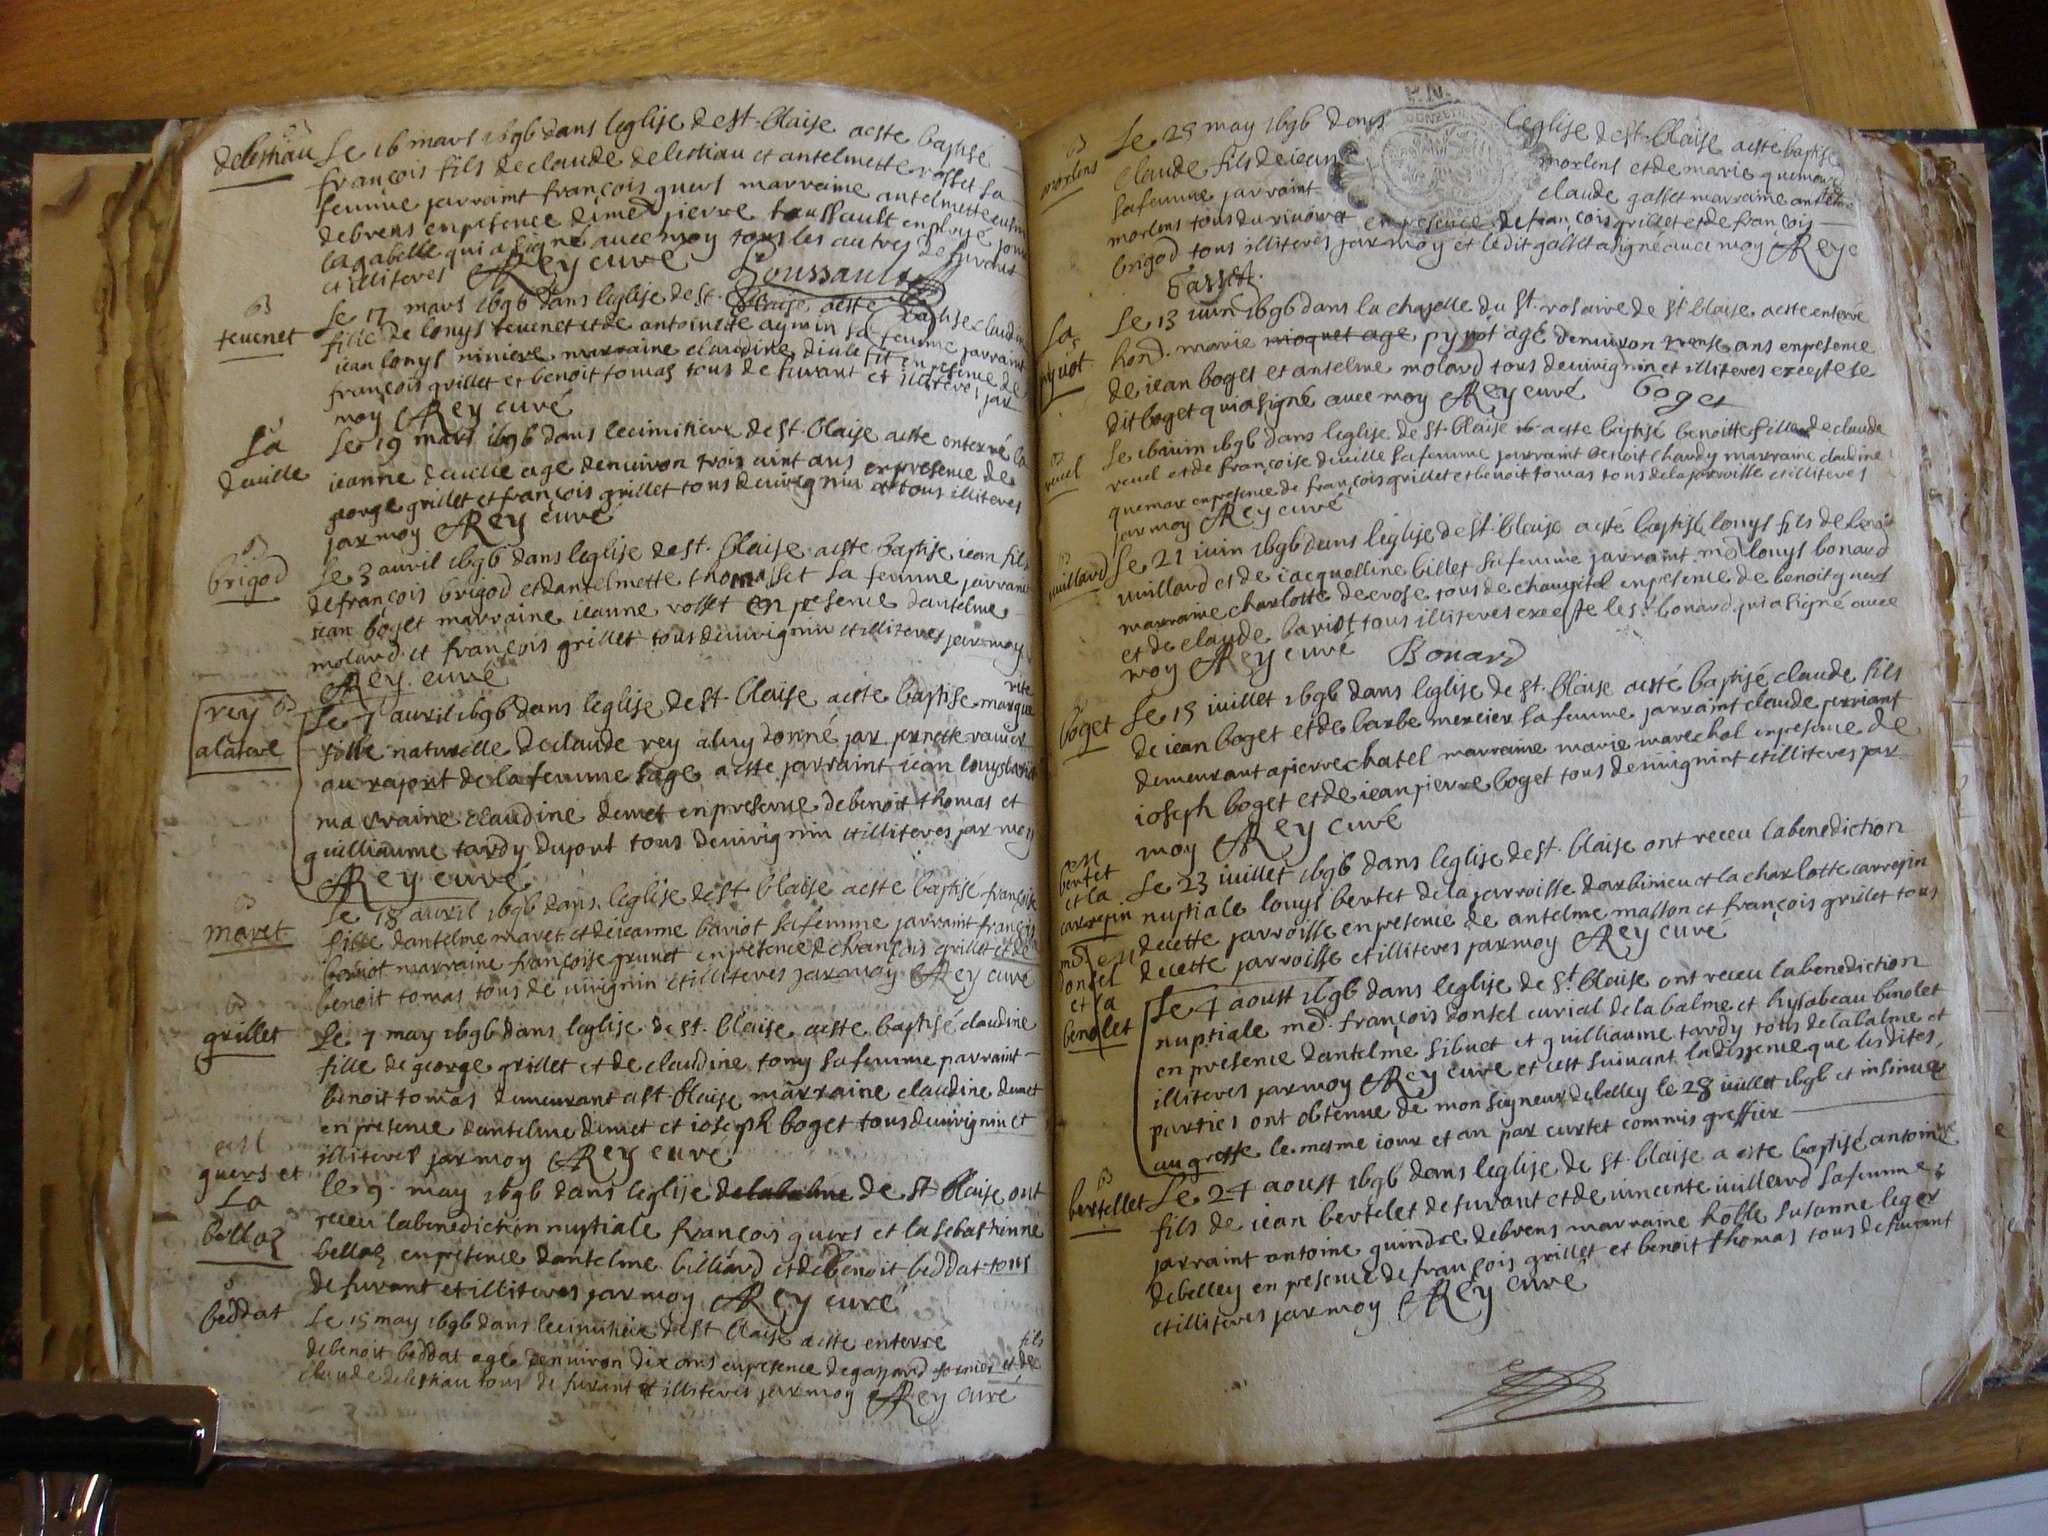 B
delestiau
Le 16 mars 1696 dans leglise de st. blaise a esté baptisé
françois fils de claude delestiau et antelmette rosset sa
femme parraint françois guers marraine antelmette
debrens en presence de me pierre toussault employé pour
la gabelle qui a signé avec moy tous les autres de furans
et illiteres Rey curé Toussault
B
tevenet
Le 17 mars 1696 dans leglise de st. blaise a esté baptisé claudine
fille de louys tevenet et de antoinete aymin sa femme parraint
iean louys niniere marraine claudine en presence de
françois grillet et benoit tomas tous de furant et illiteres par
moy Rey curé
S
La
deuille
Le 19 mars 1696 dans le cimitiere de st. blaise a esté enterré la
ieanne deuille agé denuiron trois uint ans en presence de
george grillet et françois grillet tous deuirignin et tous illiteres
par moy Rey curé
B
brigod
Le 3 auril 1696 dans leglise de st. blaise a esté baptisé iean fils
de françois brigod et dantelmette thomasset sa femme parraint
iean boget marraine ieanne rosset en presence dantelme
molard et françois grillet tous deuirignin et illiteres par moy
Rey curé
rey B
alatere
Le 7 auril 1696 dans leglise de st. blaise a esté baptisé marguerite
fille naturelle de claude rey a luy donné par pernette rauier
au raport de la femme sage a esté parraint iean louys
marraine claudine demet en presence de benoit thomas et
guilliaume tardy dupont tous deuirignin et illiteres par moy
Rey curé
B
maret
Le 18 auril 1696 dans leglise de st blaise a esté baptisé françoise
fille dantelme maret et de ieanne bariot sa femme parraint françois
bariot marraine françoise grunet en presence de françois grillet et de
benoit tomas tous de uirignin et illiteres par moy Rey curé
B
grillet
Le 7 may 1696 dans leglise de st. blaise a esté baptisé claudine
fille de george grillet et de claudine tomy sa femme parraint
benoit tomas demeurant a st. blaise marraine claudine demet
en presence dantelme demet et ioseph boget tous deuirignin et
illiteres par moy Rey curé
guers et
La
bellaz
le 9 may 1696 dans leglise delabalme de st blaise ont
receu la benediction nuptiale françois guers et la sebastienne
bellaz en presence dantelme billiard et de benoit beddat tous
de furant et illiteres par moy Rey curé
S
beddat
Le 15 may 1696 dans le cimitiere de st blaise a esté enterre fils
de benoit beddat agé denuiron dix ans en presence de gaspard fornier et de
claude delestiau tous de furant et illiteres par moy Rey curé
B
morlens
Le 28 may 1696 dans leglise de st. blaise a esté baptisé
claude fils de iean morlens et de marie quemar
sa femme parraint claude gasset marraine antelme
morlens tous du en presence de françois grillet et de françois
brigod tous illiteres par moy et ledit gasset a signé auec moy Rey c
Gasset
S
La
pyuot
Le 13 iuin 1696 dans la chapelle du st. rosaire de st blaise a esté enterré
hond. marie mioquet age pyuot agé denuiron ans en presence
de iean boget et antelme molard tous deuirignin et illiteres excepté le
dit boget qui a signé auec moy Rey curé boget
B
reuel
Le 16 iuin 1696 dans leglise de st. blaise a esté baptisé benoitte fille de claude
reuel et de françoise deuille sa femme parraint benoit chardy marraine claudine
quemar en presence de françois grillet et benoit tomas tous de la parroisse et illiteres
par moy Rey curé
B
uuillard
Le 21 iuin 1696 dans leglise de st. blaise a esté baptisé louys fils de benoit
uuillard et de iacquelline billet sa femme parraint me louys bonard
marraine charlotte decrose tous de champtel en presence de benoit guers
et de claude bariot tous illiteres excepte le sr. bonard qui a signé auec
moy Rey curé Bonard
B
boget
Le 15 iuillet 1696 dans leglise de st. blaise a esté baptisé claude fils
de iean boget et de barbe mercier sa femme parraint claude perriant
demeurant a pierre chatel marraine marie marechol en presence de
ioseph boget et de iean pierre boget tous de uirignint et illiteres par
moy Rey curé
bertet
et la
carrepin
Le 23 iuillet 1696 dans leglise de st. blaise ont receu la benediction
nuptiale louys bertet de la parroisse darbinieu et la charlotte carrepin
de cette parroisse en presence de antelme masson et françois grillet tous
de cette parroisse et illiteres par moy Rey curé
me
donsel
et la
benolet
Le 4 aoust 1696 dans leglise de st. blaise ont receu la benediction
nuptiale me. françois donsel curial de la balme et hysabeau benolet
en presence dantelme sibuet et guilliaume tardy tous de la balme et
illiteres par moy Rey curé et cest suiuant la dispence que les dites
parties ont obtenue de mon seigneur de belley le 28 iuillet 1696 et insinuee
au greffe le mesme iour et an par curtet commis greffier
B
bertellet
Le 24 aoust 1696 dans leglise de st. blaise a esté baptisé antoine
fils de iean bertelet de furant et de uincente uuillard sa femme
parraint antoine guindre debrens marraine noble susanne leger
de belley en presence de françois grillet et benoit thomas tous de furant
et illiteres par moy Rey curé